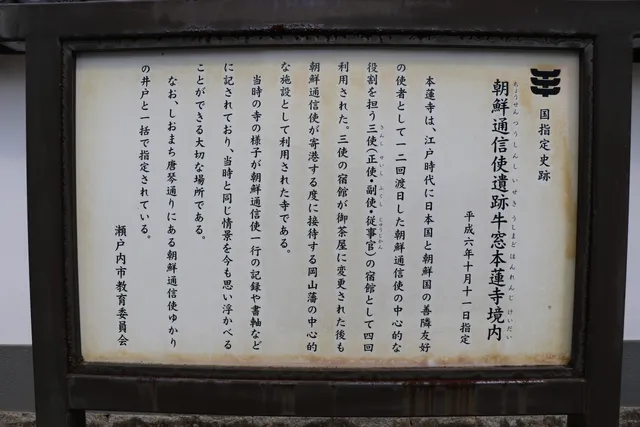 国指定史跡
ちょうせんつうしんしいせきうしまどほんれんじけいだい
朝鮮通信使遺跡牛窓本蓮寺境内
平成六年十月十一日指定
本蓮寺は、江戸時代に日本国と朝鮮国の善隣友好
の使者として一二回渡日した朝鮮通信使の中心的な
さんし せいし ふくし じゅうじかん
役割を担う三使(正使・副使・従事官)の宿館として四回
利用された。三使の宿館が御茶屋に変更された後も
朝鮮通信使が寄港する度に接待する岡山藩の中心的
な施設として利用された寺である。
当時の寺の様子が朝鮮通信使一行の記録や書軸など
に記されており、当時と同じ情景を今も思い浮かべる
ことができる大切な場所である。
なお、しおまち唐琴通りにある朝鮮通信使ゆかり
の井戸と一括で指定されている。
瀬戸内市教育委員会